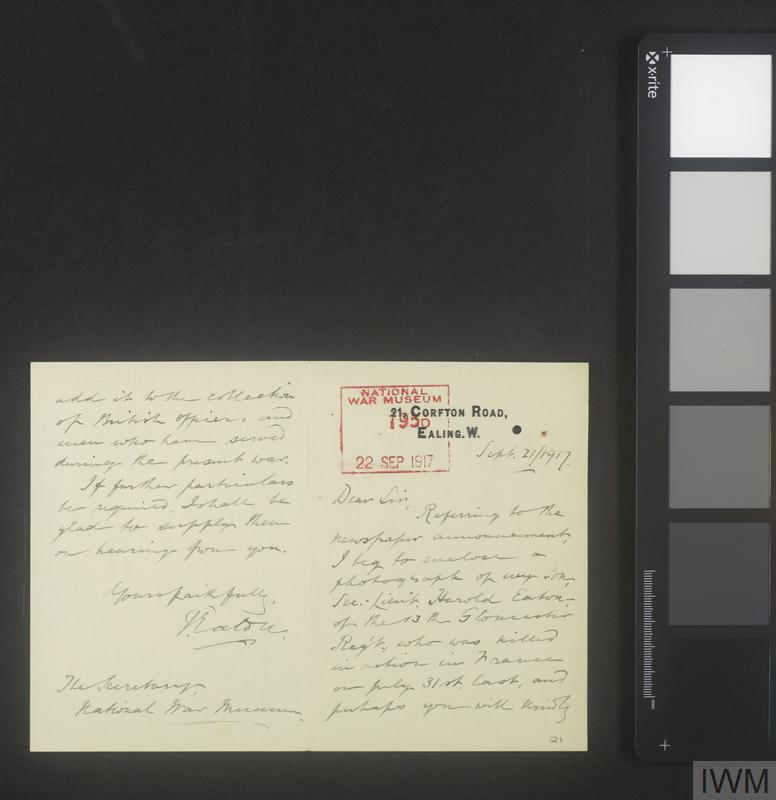 NATIONAL
WAR MUSEUM
195D
22 SEP 1917
21, CORFTON ROAD,
EALING. W.
Sept. 21/1917.
Dear Sir,
Referring to the
newspaper announcement,
I beg to enclose a
photograph of my son,
Sec.-Lieut. Harold Eaton,
of the 13th Gloucester
Regt., who was killed
in action in France
on July 31st. last, and
perhaps you will kindly
21
add it to the collection
of British officers and
men who have served
during the present war.
If further particulars
be required, I shall be
glad to supply them
on hearing from you.
Yours faithfully,
Eaton.
The Secretary,
National War Museum.
x-rite
mm
IWM